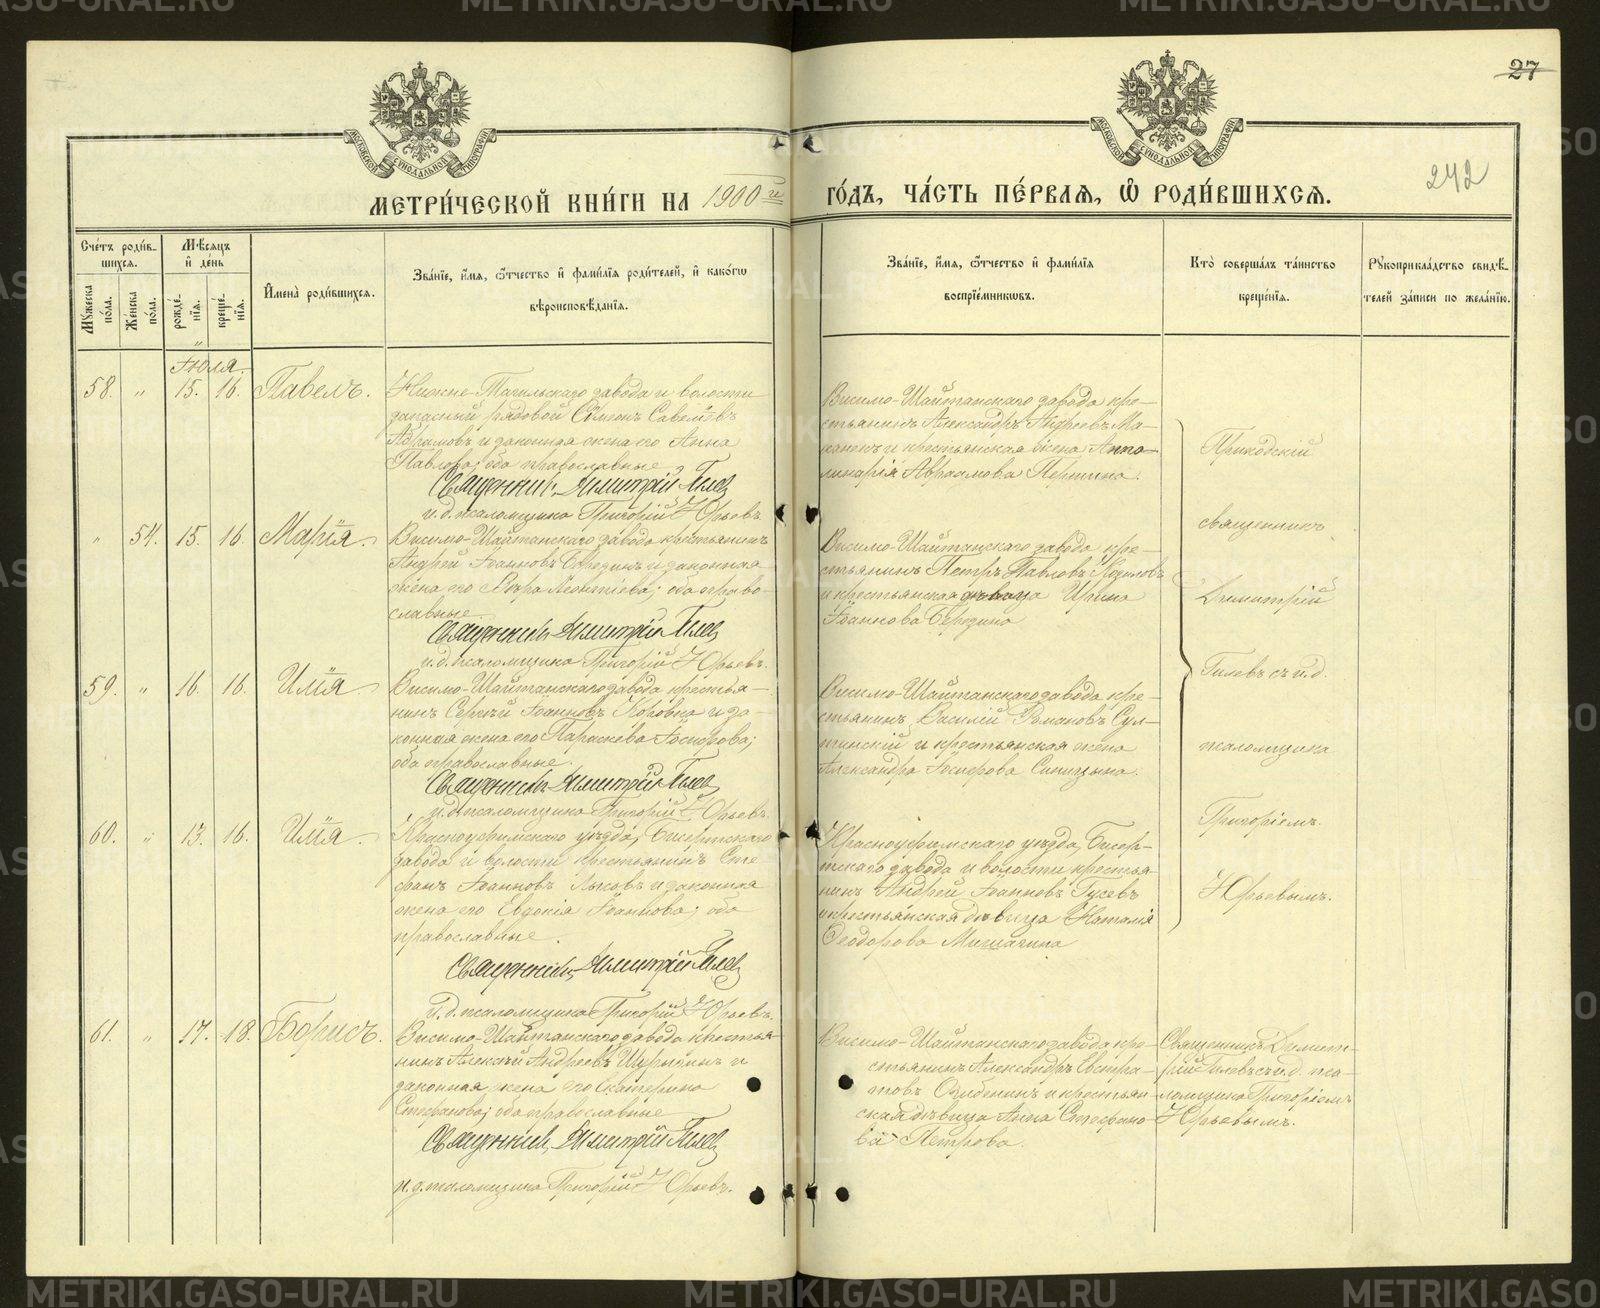 27
242
МОСКОВСКОЙ СѴНОДАЛЬНОЙ ТИПОГРАФІИ
МОСКОВСКОЙ СѴНОДАЛЬНОЙ ТИПОГРАФІИ
МЕТРИ́ЧЕСКОЙ КНИ́ГИ НА 1900 й
ГО́ДЪ, ЧА́СТЬ ПЕ́РВАѦ, Ѿ РОДИ́ВШИХСѦ.
Сче́тъ роди́в-
шихся.
Мꙋжеска по́ла.
Же́нска по́ла.
Мѣ́сяцъ и҆ де́нь
рожде́нїя.
креще́нїя.
И҆мена̀ роди́вшихся.
Зва́нїе, и҆́мя, ѻ҆́тчество и҆ фами́лїя роди́телей, и҆ како́гѡ
вѣроисповѣ́данїя.
Зва́нїе, и҆́мя, ѻ҆́тчество и҆ фами́лїя
воспрїе́мникѡвъ.
Кто̀ соверша́лъ та́инство
креще́нїя.
Рꙋкоприкла́дство свидѣ́-
телей за́писи по жела́нїю.
Іюля.
58. " 15. 16. Павелъ.
Нижне-Тагильскаго завода и волости
запасный рядовой Симеонъ Савельевъ
Абрамовъ и законная жена его Анна
Павлова; оба православные
Священникъ Димитрій Гилевъ
и. д. псаломщика Григорій Юрьевъ.
Висимо-Шайтанскаго завода кре-
стьянинъ Александръ Андреевъ Ма-
и крестьянская жена Аппо-
линарія Авраамова Першина.
" 54. 15. 16. Марія.
Висимо-Шайтанскаго завода крестьянинъ
Андрей Іоанновъ Бередин и законная
жена его Вѣра Леонтіева; оба право-
славные
Священникъ Димитрій Гилевъ
и. д. псаломщика Григорій Юрьевъ.
Висимо-Шайтанскаго завода кре-
стьянинъ Петръ Павловъ
и крестьянская дѣвица Ирина
Іоаннова Бередина
59. " 16. 16. Илія
Висимо-Шайтанскаго завода крестья-
нинъ Сергѣй Іоанновъ и за-
конная жена его Параскева Іосифова;
оба православные.
Священникъ Димитрій Гилевъ
и. д. псаломщика Григорій Юрьевъ.
Висимо-Шайтанскаго завода кре-
стьянинъ Василій Романовъ Сул-
тинскій и крестьянская жена
Александра Іосифова Синицына.
60. " 13. 16. Илія.
Красноуфимскаго уѣзда, Бисертскаго
завода и волости крестьянинъ Сте-
фанъ Іоанновъ Лысовъ и законная
жена его Евдокія Іоаннова; оба
православные.
Священникъ Димитрій Гилевъ
И. д. псаломщика Григорій Юрьевъ.
Красноуфимскаго уѣзда, Бисер-
тскаго завода и волости крестья
нинъ Андрей Іоанновъ Гусевъ
и крестьянская дѣвица Наталія
Ѳеодорова Мишагина
Приходскій
священникъ
Димитрій
Гилевъ съ и. д.
псаломщика
Григоріемъ
Юрьевымъ.
61. " 17. 18. Борисъ.
Висимо-Шайтанскаго завода крестья-
нинъ Алексѣй Андреевъ и
законная жена его Екатерина
Стефанова; оба православные
Священникъ Димитрій Гилевъ
и. д. псаломщика Григорій Юрьевъ.
Висимо-Шайтанскаго завода кре-
стьянинъ Александръ Евстра-
товъ и крестьян-
ская дѣвица Анна Стефано-
ва Петрова.
Священникъ Димит-
рій Гилевъ съ и. д. пса-
ломщика Григоріемъ
Юрьевымъ.
METRIKI.GASO-URAL.RU